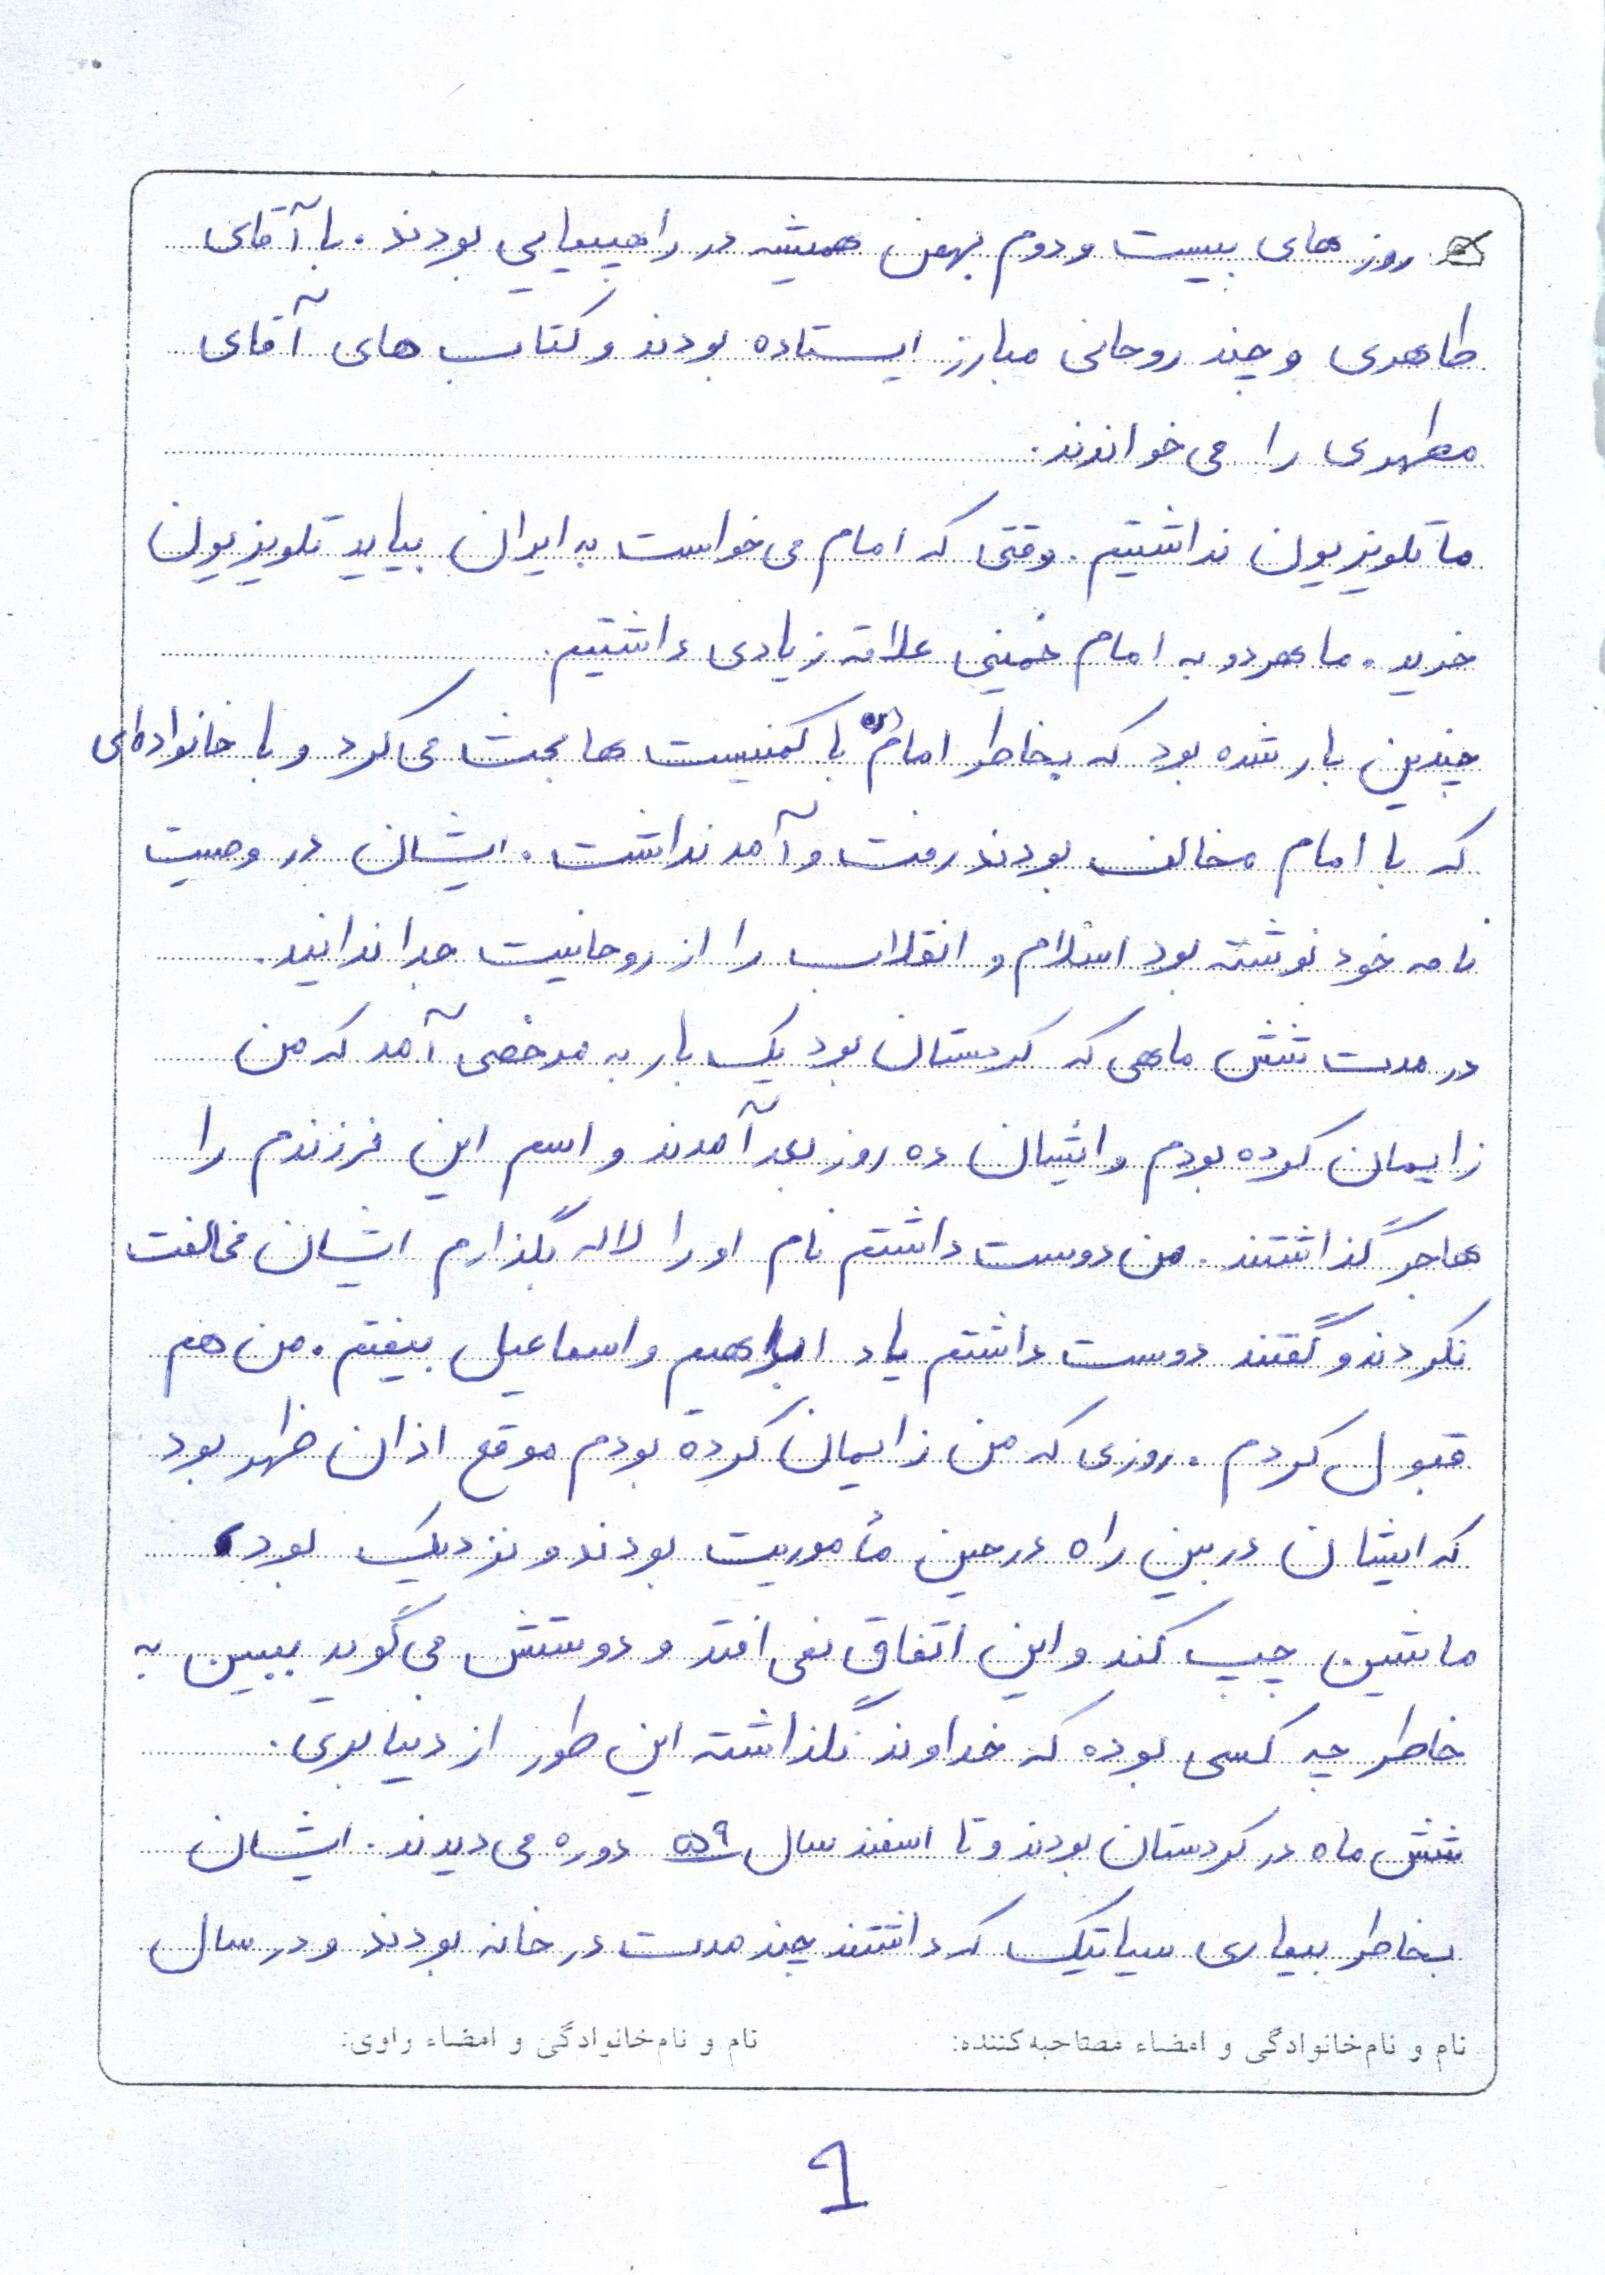 روزهای بیست و دوم بهمن همیشه در راهپیمایی بودند. با آقای
طاهری و چند روحانی مبارز ایستاده بودند و کتاب های آقای
مطهری را می خواندند.
ما تلویزیون نداشتیم. وقتی که امام می خواست به ایران بیاید تلویزیون
خرید. ما هر دو به امام خمینی علاقه زیادی داشتیم.
چندین بار شده بود که بخاطر امام (ره) با کمنیست ها بحث می کرد و با خانواده ای
که با امام مخالف بودند رفت و آمد نداشت. ایشان در وصیت
نامه خود نوشته بود اسلام و انقلاب را از روحانیت جدا ندانید.
در مدت شش ماهی که کردستان بود یک بار به مرخصی آمد که من
زایمان کرده بودم و ایشان ده روز بعد آمدند و اسم این فرزندم را
هاجر گذاشتند. من دوست داشتم نام او را لاله بگذارم ایشان مخالفت
نکردند و گفتند دوست داشتم یاد ابراهیم و اسماعیل بیفتم. من هم
قبول کردم. روزی که من زایمان کرده بودم موقع اذان ظهر بود
که ایشان در بین راه در حین مأموریت بودند و نزدیک بود
ماشین چپ کند و این اتفاق نمی افتد و دوستش می گوید ببین به
خاطر چه کسی بوده که خداوند نگذاشته این طور از دنیا بری.
شش ماه در کردستان بودند و تا اسفند سال ۵۹ دوره می دیدند. ایشان
بخاطر بیماری سیاتیک که داشتند چند مدت در خانه بودند و در سال
نام و نام‌خانوادگی و امضاء مصاحبه‌کننده: نام و نام‌خانوادگی و امضاء راوی:
۹